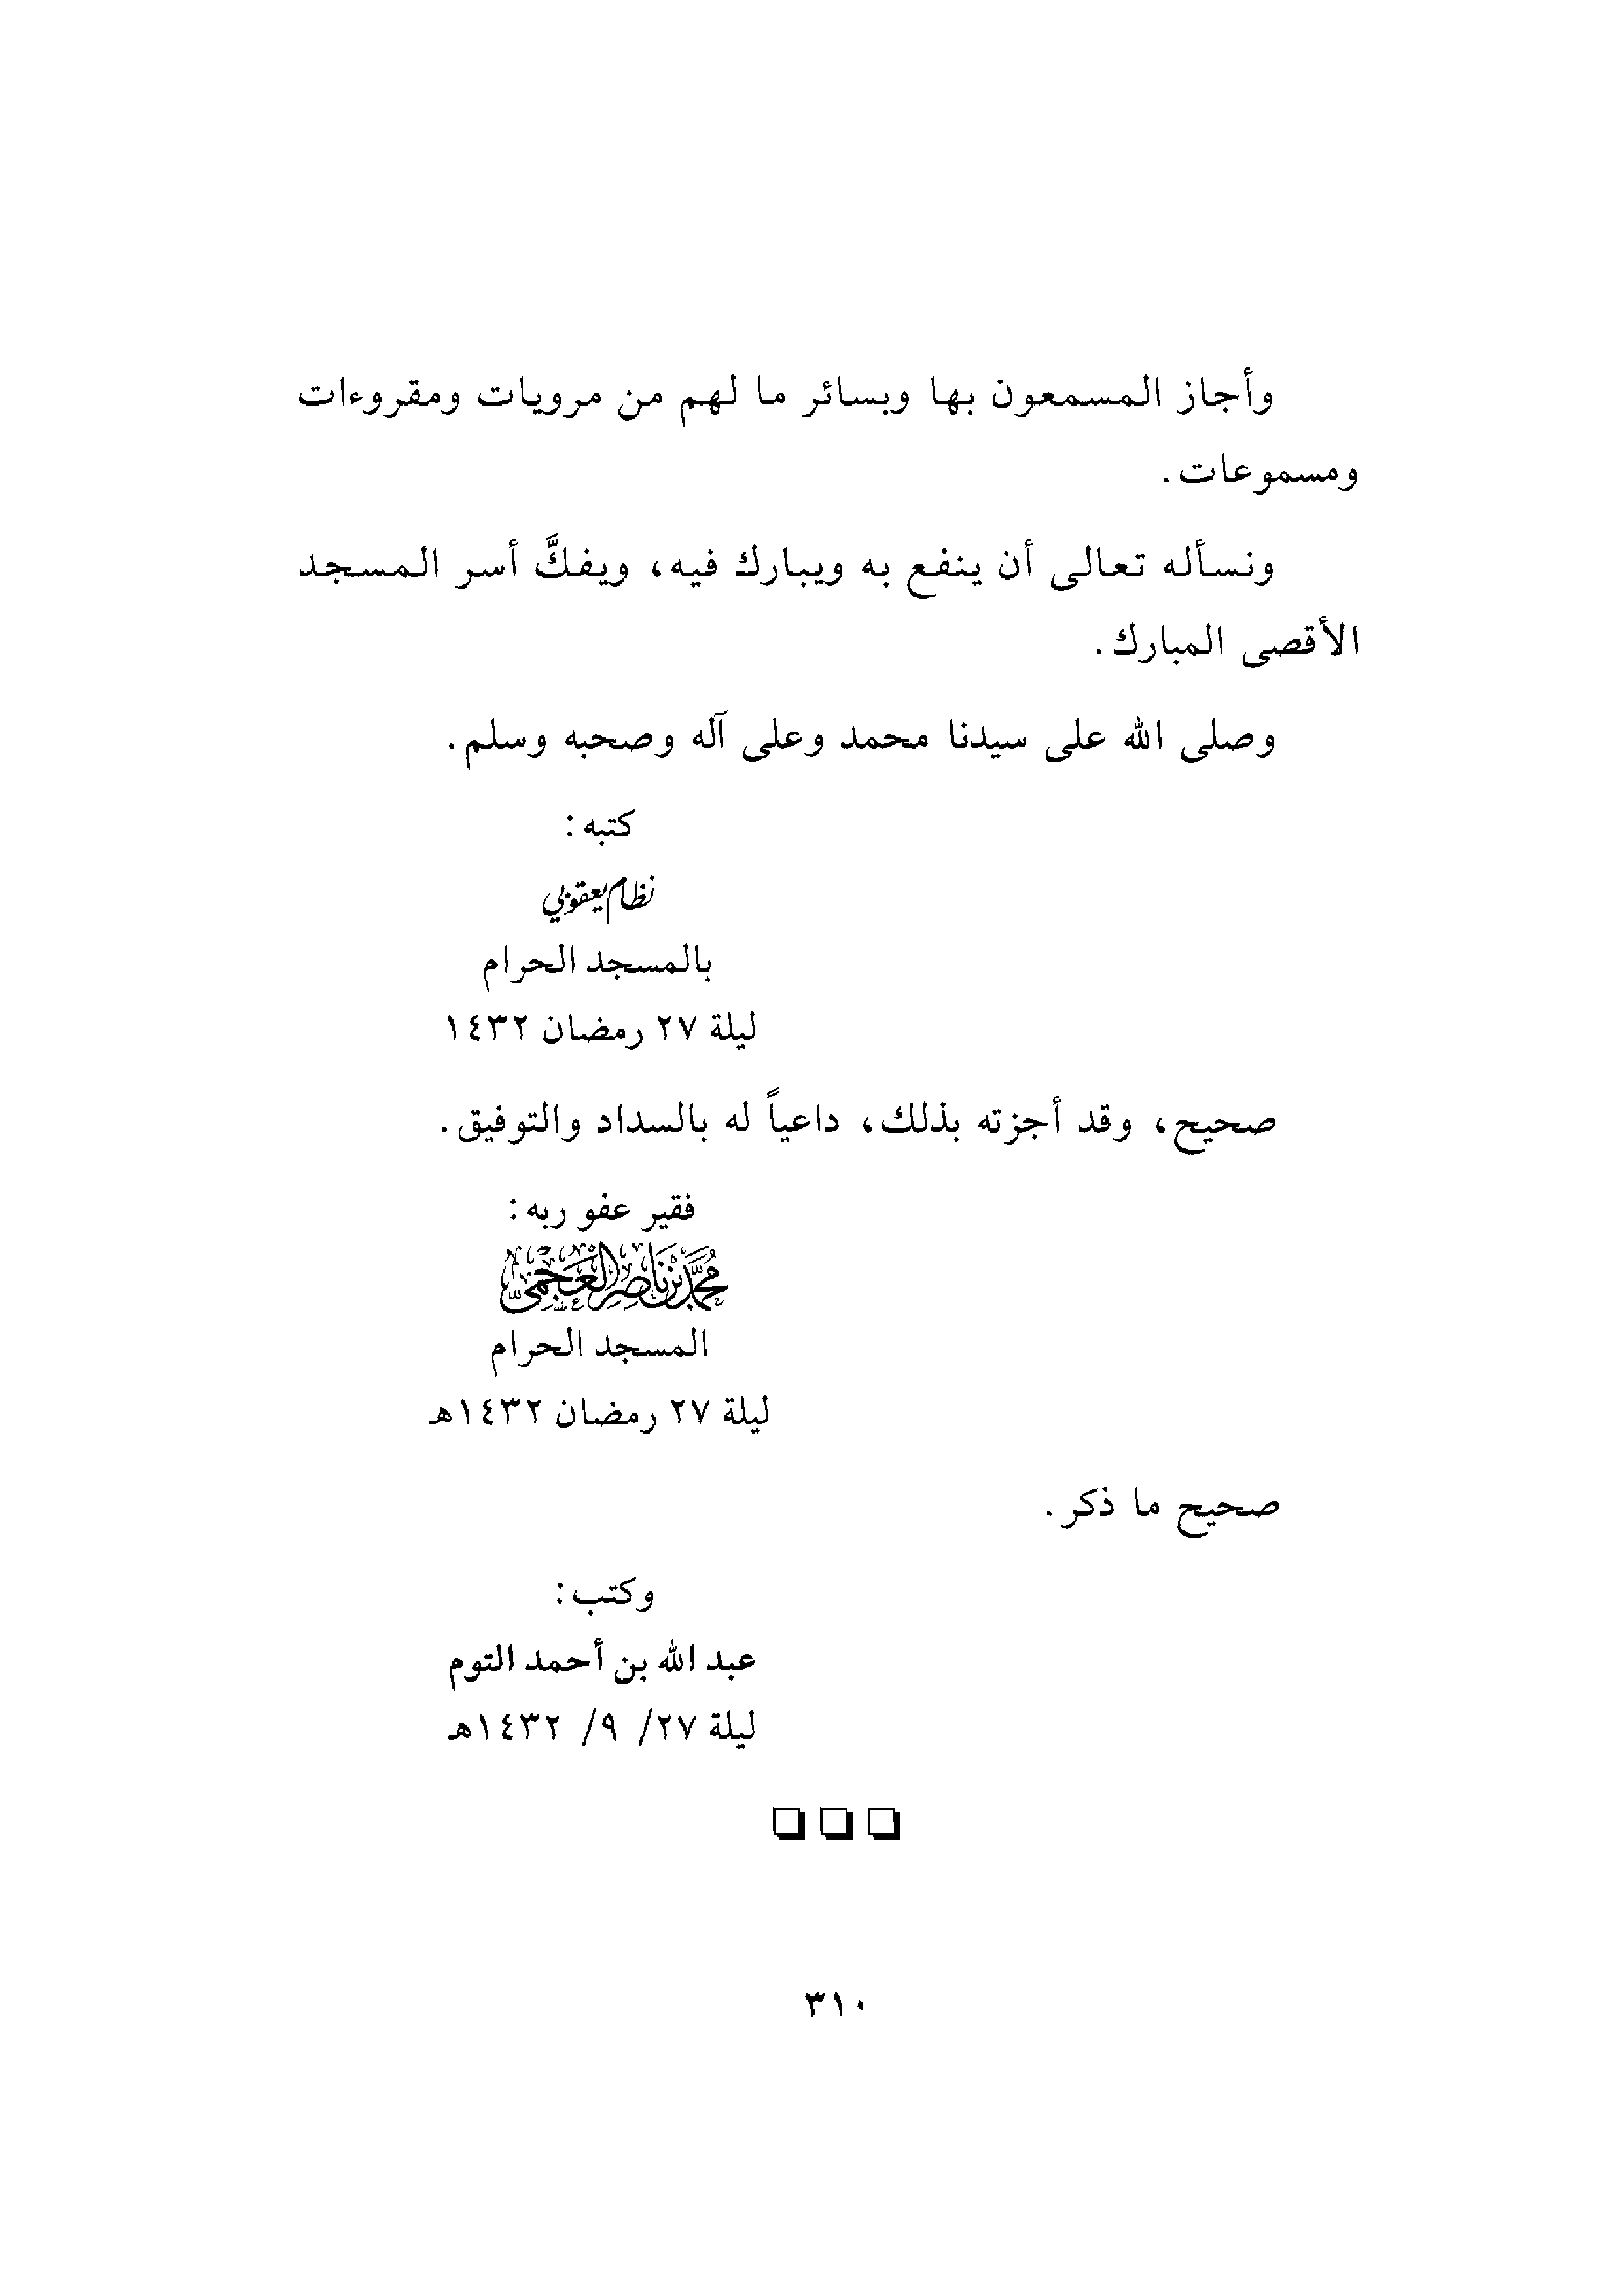 وأجاز المسمعون بها وبسائر ما لهم من مرويات ومقروءات
ومسموعات.
ونسأله تعالى أن ينفع به ويبارك فيه، ويفكَّ أسر المسجد
الأقصى المبارك.
وصلى الله على سيدنا محمد وعلى آله وصحبه وسلم.
كتبه:
نظام يعقوبي
بالمسجد الحرام
ليلة ٢٧ رمضان ١٤٣٢
صحيح، وقد أجزته بذلك، داعياً له بالسداد والتوفيق.
فقير عفو ربه:
محمد بن ناصر العجمي
المسجد الحرام
ليلة ٢٧ رمضان ١٤٣٢هـ
صحيح ما ذكر.
وكتب:
عبد الله بن أحمد التوم
ليلة ٢٧/ ٩/ ١٤٣٢هـ
٣١٠